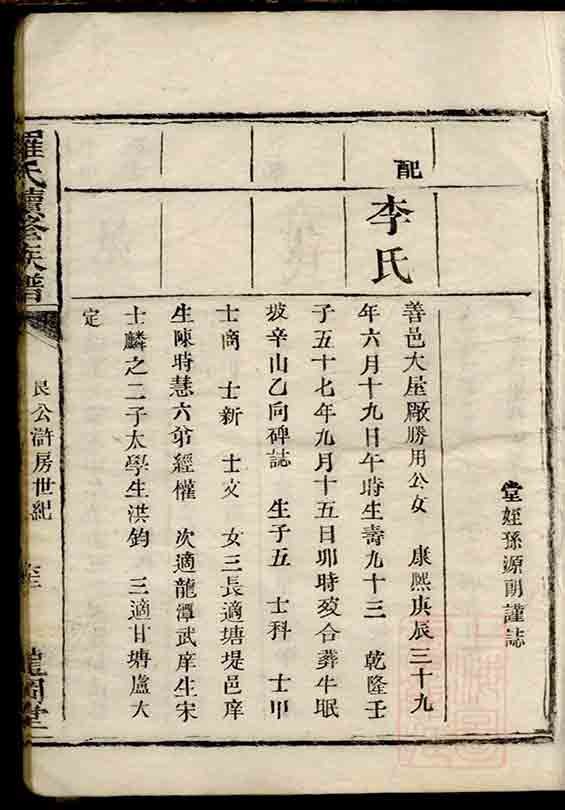 堂姪孫源朗謹誌
配
李氏
善邑大屋廠勝用公女　康熙庚辰三十九
年六月十九日午時生壽九十三　乾隆壬
子五十七年九月十五日卯時歿合葬牛眠
坡辛山乙向碑誌　生子五　士科　士甲
士商　士新　士文　女三長適塘堤邑庠
生陳時慧六弟經權　次適龍潭武庠生宋
士麟之二子太學生洪鈞　三適甘塘盧大
定
羅氏續修族譜
良公滸房世紀